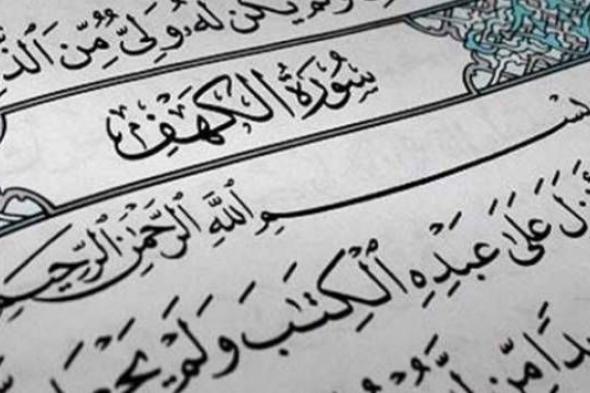 وَلَمْ يَكُن لَّهُۥ وَلِىٌّ مِّنَ ٱلذُّ
سُورَةُ الكَهْفِ
بِسْمِ ٱللَّهِ ٱلرَّحْمَٰنِ ٱلرَّحِيمِ
أَنزَلَ عَلَىٰ عَبْدِهِ ٱلْكِتَٰبَ وَلَمْ يَجْعَل
مِّن